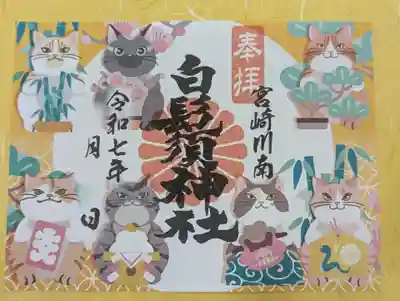 奉拝
宮崎川南
白鬚須神社
令和七年
月 日